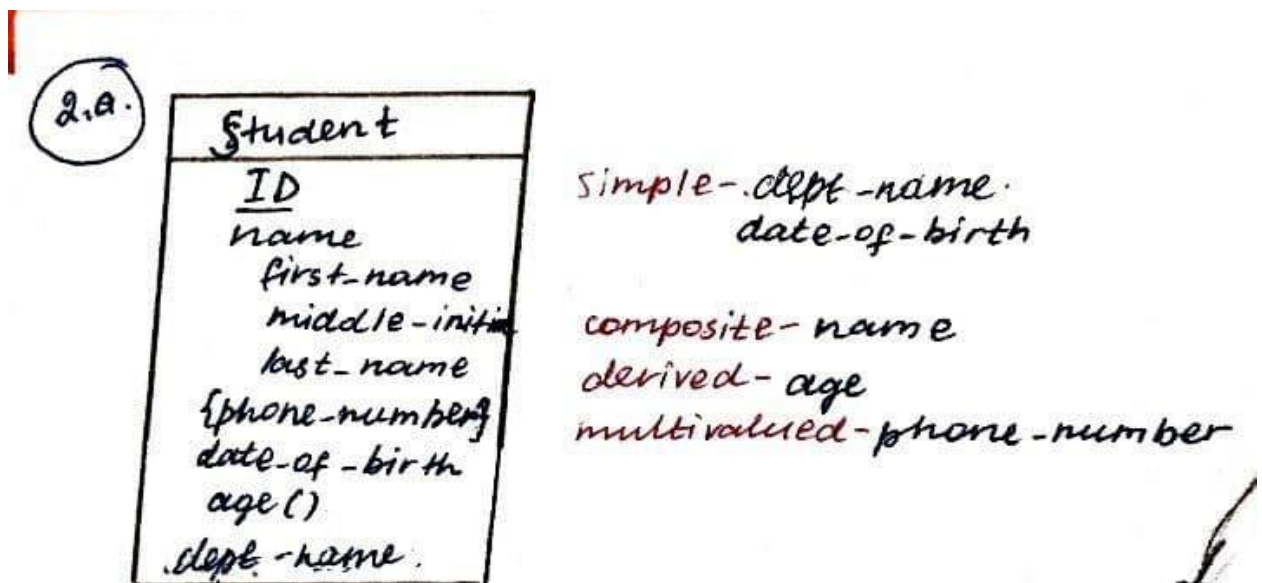 2.a.
Student
ID
name
first_name
middle-initia
last_name
{phone-number}
date_of_birth
age()
dept-name.
simple-.dept-name.
date-of-birth
composite-name
derived-age
multivalued-phone-number